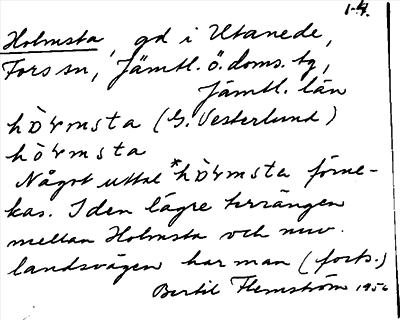 1-4.
Holmsta, gd i Utanede,
Fors sn, Jämtl. ö. doms. tg,
Jämtl. län
hòʋmsta (G. Vesterlund)
hòʋmsta
Något uttal *hòʋmsta förne-
kas. I den lägre terrängen
mellan Holmsta och nuv.
landsvägen har man (forts.)
Bertil Flemström 1956